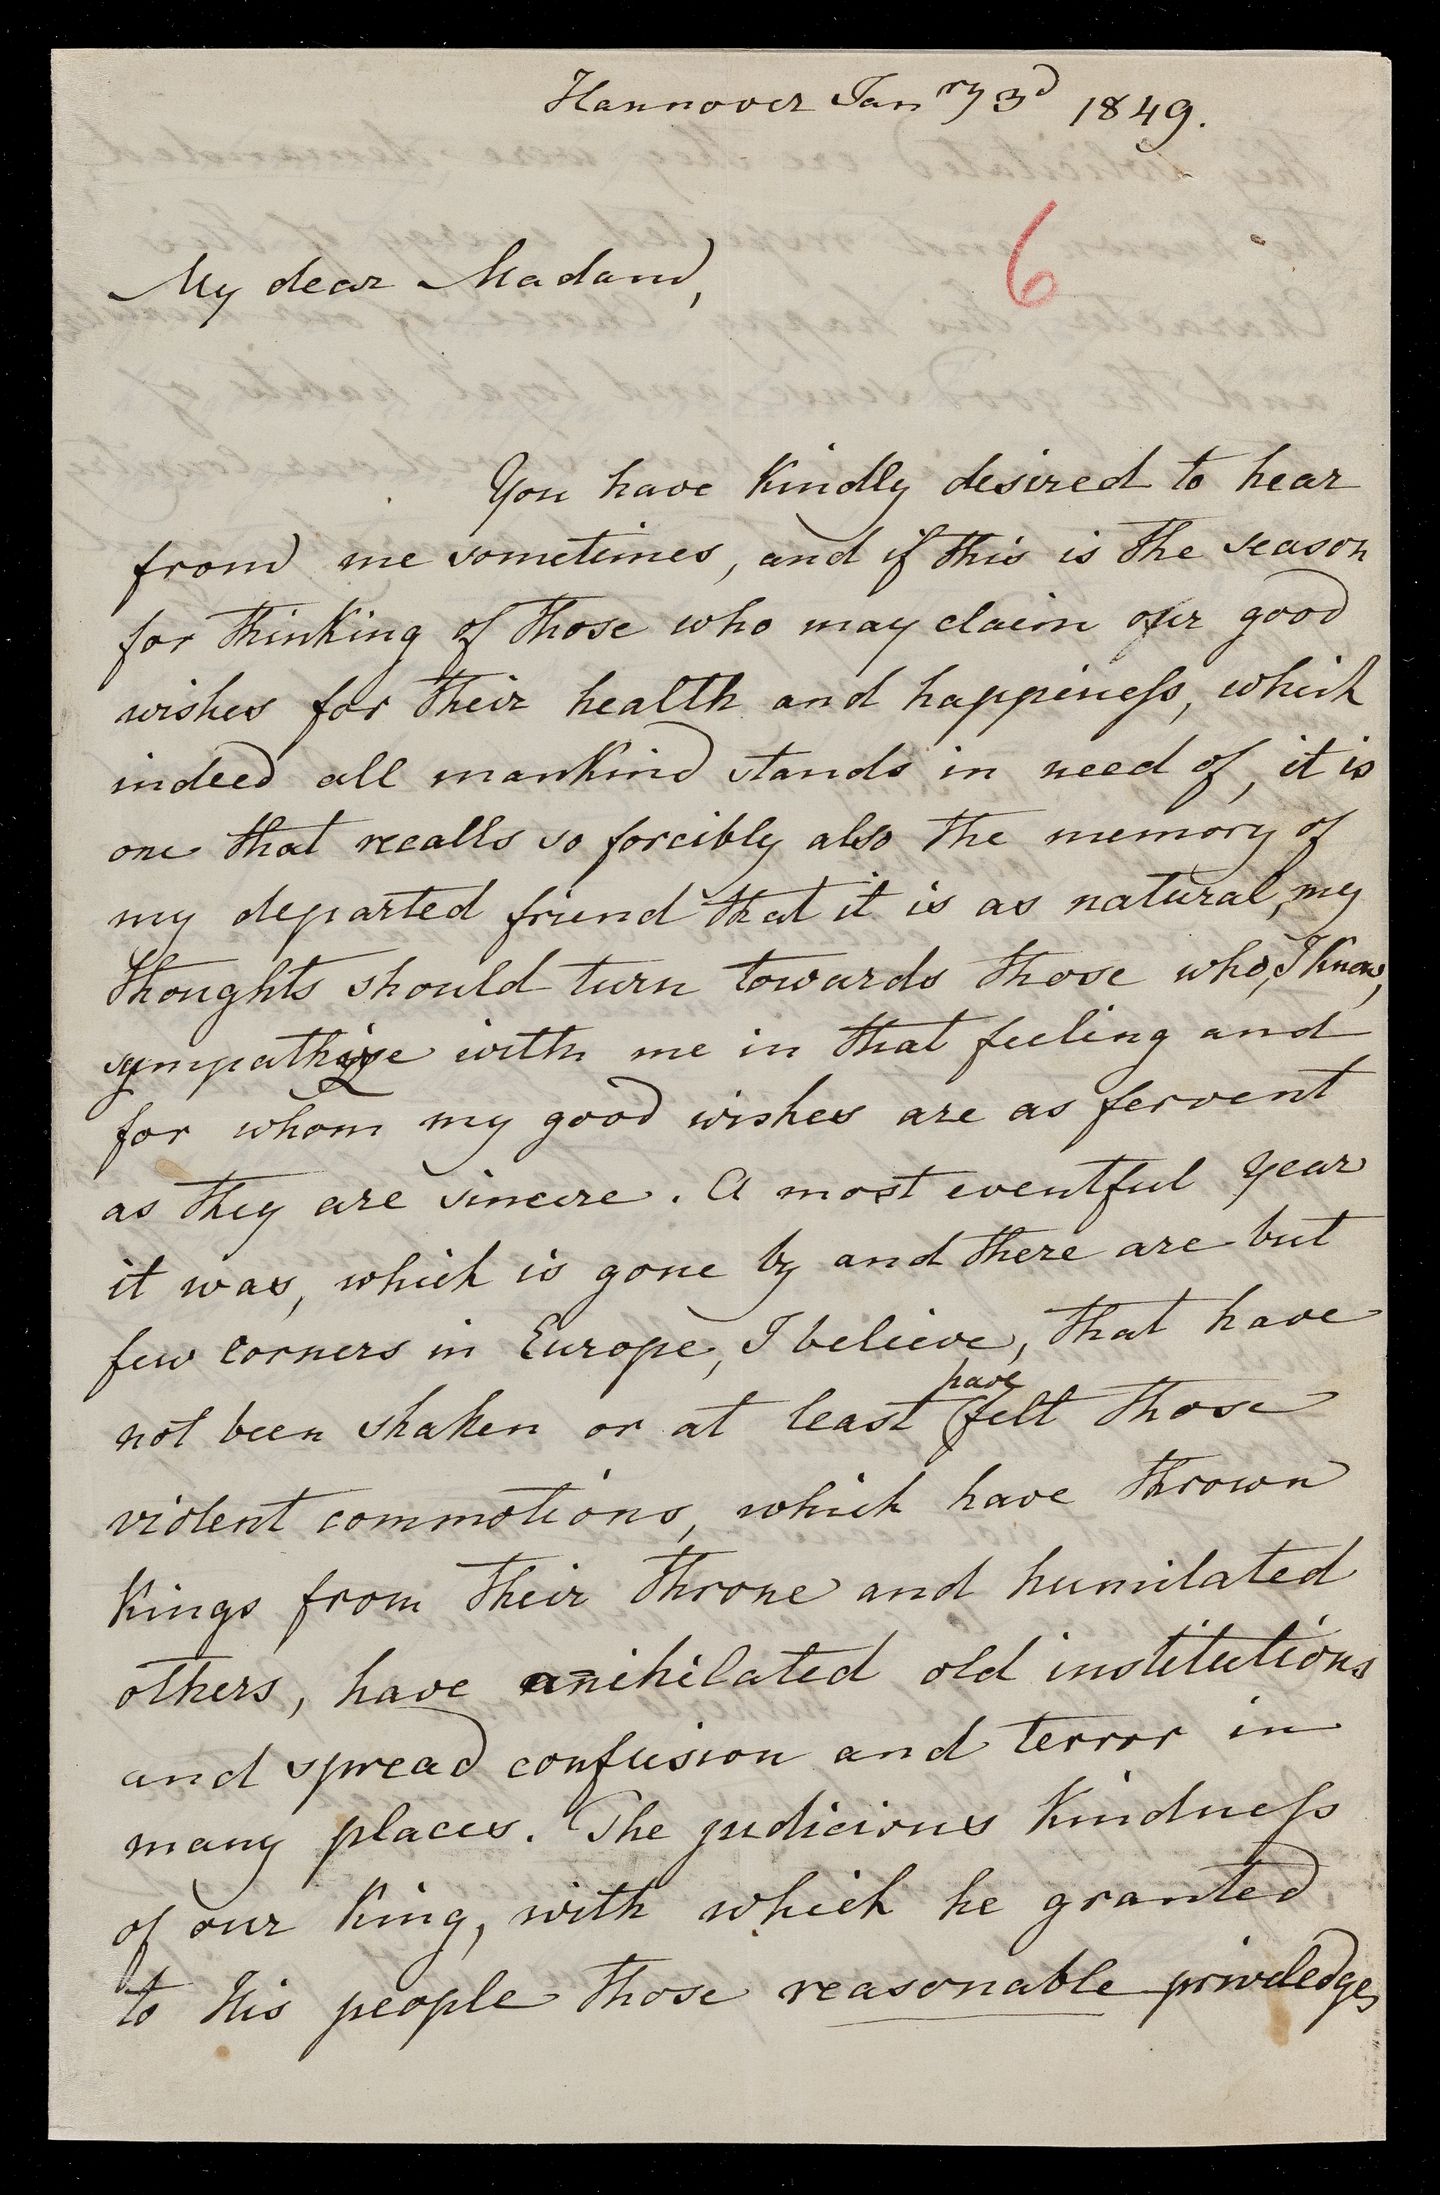 Hannover Jan ry 3d 1849.
6
My dear Madam,
You have kindly desired to hear
from me sometimes, and if this is the season
for thinking of those who may claim our good
wishes for their health and happiness, which
indeed all mankind stands in need of, it is
one that recalls so forcibly also the memory of
my departed friend that it is as natural, my
thoughts should turn towards those who, I know,
sympathize with me in that feeling and
for whom my good wishes are as fervent
as they are sincere. A most eventful year
it was, which is gone by and there are but
few corners in Europe, I believe, that have
not been shaken or at least have felt those
violent commotions, which have thrown
Kings from their throne and humilated
others, have anihilated old institutions
and spread confusion and terror in
many places. The judicious kindness
of our King, with which he granted
to His people those reasonable priviledges